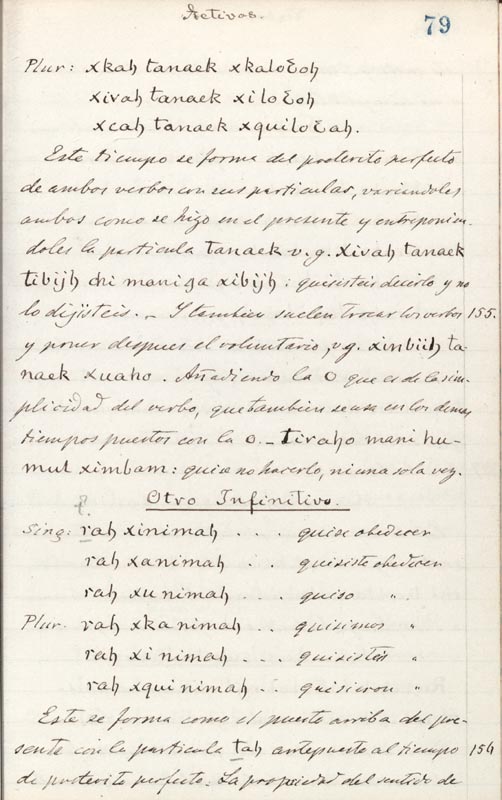 Activos.
79
Plur: xkah tanaek xkaloƐoh
xivah tanaek xiloƐoh
xcah tanaek xquiloƐah.
Este tiempo se forma del preterito perfecto
de ambos verbos con sus particulas, variandoles
ambos como se hizo en el presente y entreponien-
doles la particula tanaek v.g. xivah tanaek
tibijh chi maniga xibijh: quisisteis decirlo y no
lo dijisteis. _ Y tambien suelen trocar los verbos 155.
y poner despues el voluntario, vg. xinbiih ta-
naek xuaho. Añadiendo la O que es de la sim-
plicidad del verbo, que tambien se usa en los demas
tiempos puestos con la o. _ tiraho mani hu-
mul ximbam: quise no hacerlo, ni una sola vez.
Otro Infinitivo.
Sing: rah xinimah . . . quise obedecer
rah xanimah . . . quisiste obedecer
rah xu nimah . . . quiso "
Plur. rah xka nimah . . quisimos "
rah xi nimah . . . quisisteis "
rah xqui nimah . . quisieron "
Este se forma como el puesto arriba del pre-
sente con la particula tah antepuesto al tiempo 156
de preterito perfecto. La propiedad del sentido de